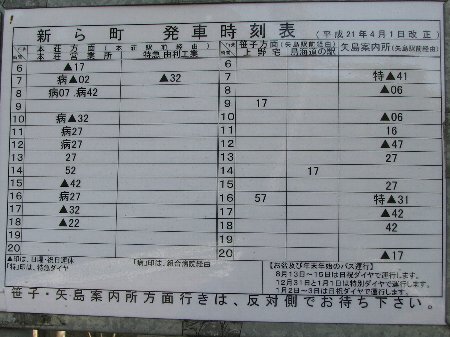 新ら町 発車時刻表 （平成21年4月1日改正）
本荘方面（本荘駅前経由）
本荘営業所 特急 由利工業
笹子方面（矢島駅前経由） 矢島案内所（矢島駅前経由）
上野宅 鳥海道の駅
6 ▲17
7 病▲02 ▲32
8 病07 病42
9
10 病▲32
11 病27
12 病27
13 27
14 52
15 ▲42
16 病27
17 ▲32
18 ▲22
19
20
6
7 特▲41
8 ▲06
9 17
10 ▲06
11 16
12 ▲47
13 27
14 17
15 27
16 57 特▲31
17 ▲42
18 42
19
20 ▲17
▲印は、日曜・祝日運休 「病」印は、組合病院経由
「特」印は、特急ダイヤ
【お盆及び年末年始のバス運行】
8月13日～15日は日祝ダイヤで運行します。
12月31日と1月1日は特別ダイヤで運行します。
1月2日～3日は日祝ダイヤで運行します。
笹子・矢島案内所方面行きは、反対側でお待ち下さい。